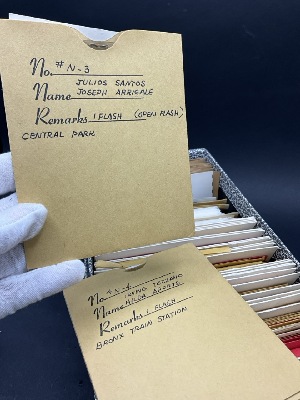 No. # N-3
JULIOS SANTOS
Name JOSEPH ARRIGALE
Remarks 1 FLASH (OPEN FLASH)
CENTRAL PARK
No. N-4
Name
Remarks 1 FLASH
BRONX TRAIN STATION